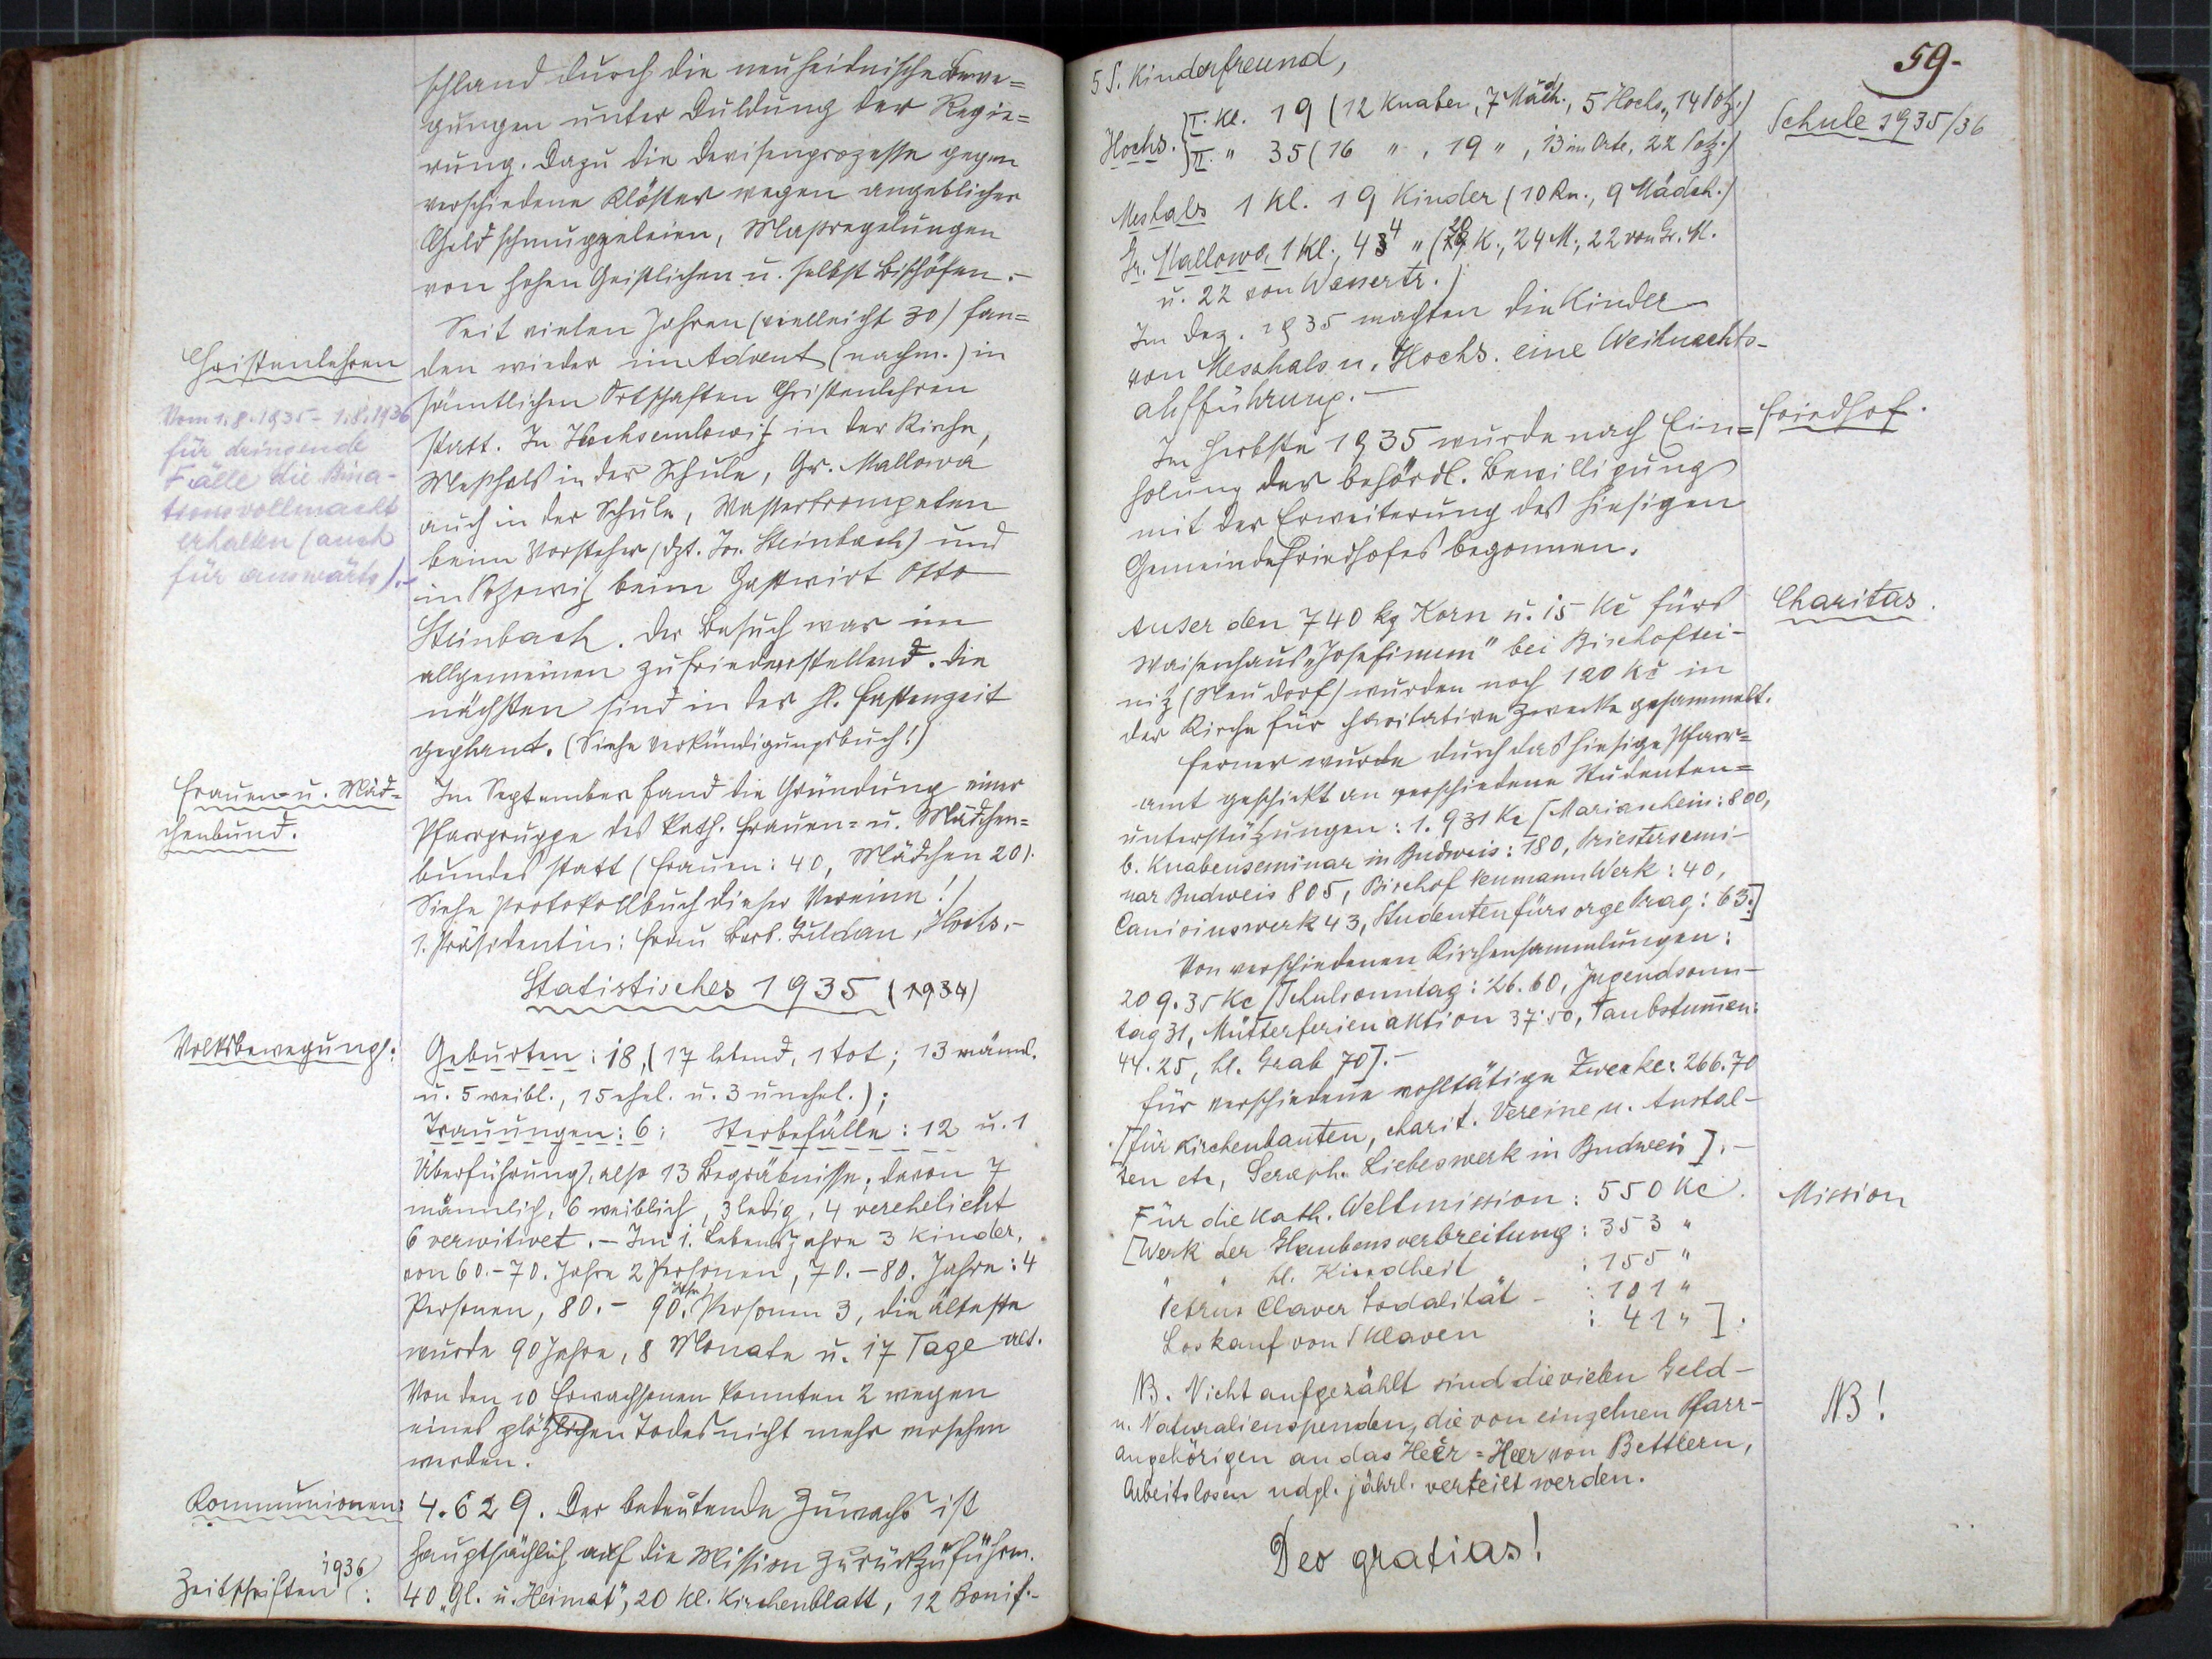 schland durch die neuheidnische Bewe=
gungen unter Duldung der Regie=
rung. Dazu die Devisenprozesse gegen
verschiedene Klöster wegen angeblicher
Geldschmuggeleien, Massregelungen
von hohen Geistlichen u. selbst Bischöfen.-
Christenlehren
Seit vielen Jahren (vielleicht 30) fan=
den wieder im Advent (nachm.) in
sämtlichen Ortschaften Christenlehren
statt. In Hochsemlowitz in der Kirche,
Messhals in der Schule, Gr. Mallowa
auch in der Schule, Wassertrompeten
beim Vorsteher (dzt. Jos. Steinbach) und
in beim Gastwirt Otto
Steinbach. Der Besuch war im
allgemeinen zufriedenstellend. Die
nächsten sind in der hl. Fastenzeit
geplant. (Siehe Verkündigungsbuch!)
Vom 1.8.1935 - 1.8.1936
für dringende
Fälle die Bina-
tionsvollmacht
erhalten (auch
für auswärts).-
Frauen- u. Mäd=
chenbund.
Im September fand die Gründung einer
Pfarrgruppe des kath. Frauen= u. Mädchen=
bundes statt (Frauen: 40, Mädchen 20).
Siehe Protokollbuch dieser Vereine!)
1. Präsidentin: Frau Barb. Guldan, Hochs.-
Statistisches 1935 (1934)
Volksbewegung:
Geburten: 18, (17 lebend, 1 tot; 13 männl.
u. 5 weibl., 15 ehel. u. 3 unehel.);
Trauungen: 6; Sterbefälle: 12 u. 1
Überführung, also 13 Begräbnisse; davon 7
männlich, 6 weiblich, 3 ledig, 4 verehelicht
6 verwitwet. - Im 1. Lebensjahre 3 Kinder,
von 60.-70. Jahre 2 Personen, 70.-80. Jahre: 4
Personen, 80.- 90. Jahre Personen 3, die älteste
wurde 90 Jahre, 8 Monate u. 17 Tage alt.
Von den 10 Erwachsenen konnten 2 wegen
eines plötzlichen Todes nicht mehr versehen
werden.
Kommunionen:
4.629. Der bedeutende Zuwachs ist
hauptsächlich auf die Mission zurückzuführen.
Zeitschriften 1936:
40 "Gl. u. Heimat", 20 Kl. Kirchenblatt, 12 Bonif.-
59.
5 S. Kinderfreund,
Schule 1935/36
Hochs. I. Kl. 19 (12 Knaben, 7 Mädch., 5 Hochs., 14 )
II. " 35 (16 " , 19 " , 13 im Orte, 22 )
Meshals 1 Kl. 19 Kinder (10 Kn., 9 Mädch.)
Gr. Mallowa 1 Kl., 44 " (20 K., 24 M., 22 von Gr. M.
u. 22 von Wassertr.)
Im Dez. 1935 machten die Kinder
von Messhals u. Hochs. eine Weihnachts-
aufführung.-
Friedhof.
Im Herbste 1935 wurde nach Ein=
holung der behördl. Bewilligung
mit der Erweiterung des hiesigen
Gemeindefriedhofes begonnen.
Charitas.
Auser den 740 kg Korn u. 15 Kč fürs
Waisenhaus "Josefinum" bei Bischoftei-
nitz (Neudorf) wurden noch 120 Kč in
der Kirche für charitative Zwecke gesammelt.
Ferner wurde durch das hiesige Pfarr=
amt geschickt an verschiedene Studenten=
unterstützungen: 1.931 Kc [Mariaschein: 800,
b. Knabenseminar in Budweis: 180, Priestersemi-
nar Budweis 805, Bischof Neumann Werk: 40,
Canisiuswerk 43, Studentenfürsorge Prag: 63.]
Von verschiedenen Kirchensammlungen:
209.35 Kc [Schulsonntag: 26.60, Jugendsonn-
tag 31, Mütterferienaktion 37.50, Taubstum̅en:
44.25, hl. Grab 70].-
Für verschiedene wohltätige Zwecke: 266.70
[für Kirchenbauten, charit. Vereine u. Anstal-
ten etc, Seraph. Liebeswerk in Budweis].-
Mission
Für die kath. Weltmission: 550 Kč.
[Werk der Glaubensverbreitung: 353 "
" " hl. Kindheit : 155 "
Petrus Claver Sodalität - : 101 "
Loskauf von Sklaven : 41 "].
NB!
NB. Nicht aufgezählt sind die vielen Geld-
u. Naturalienspenden, die von einzelnen Pfarr-
angehörigen an das Heer = Heer von Bettlern,
Arbeitslosen udgl. jährl. verteilt werden.
Deo gratias!